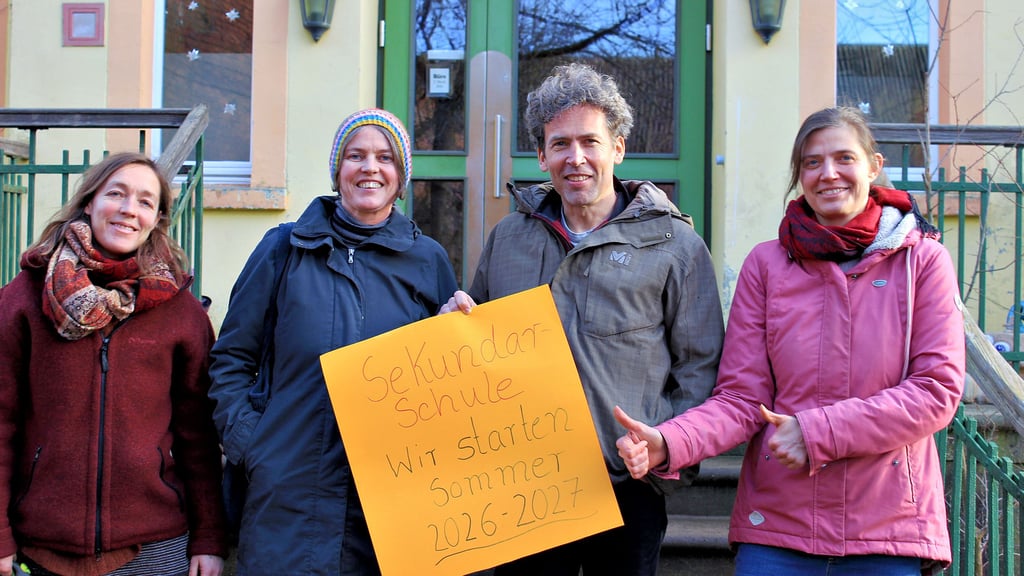 Büro
Sekundar-
schule
Wir starten
Sommer
2026-2027